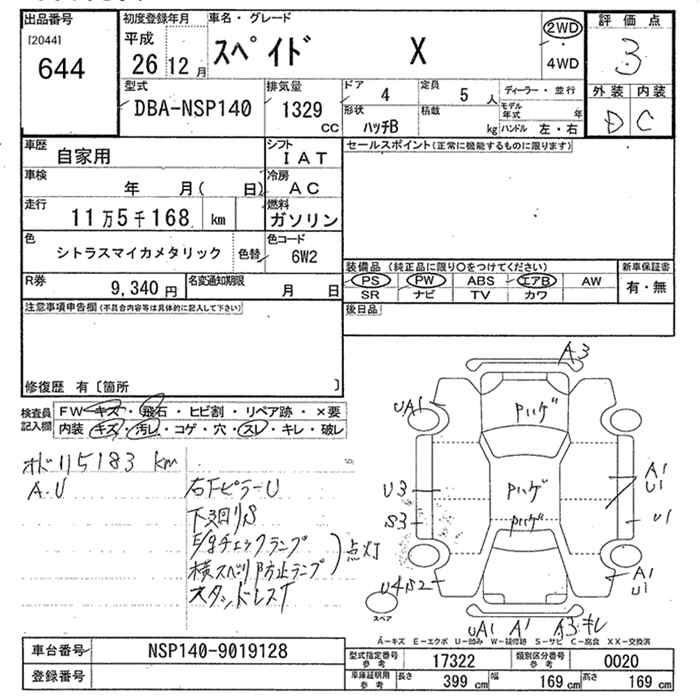 出品番号
[2044]
644
初度登録年月
平成
26 12 月
車名・グレード
スペイド X
2WD
4WD
評価点
3
外装 内装
D C
型式
DBA-NSP140
排気量
1329
CC
ドア
4
定員
5 人
形状
ハッチB
積載
kg
ディーラー・並行
モデル年式 年
ハンドル 左・右
車歴
自家用
シフト
IAT
車検
年 月( 日)
冷房
AC
走行
11万5千168 km
燃料
ガソリン
色
シトラスマイカメタリック
色替
色コード
6W2
R券
9,340 円
名変通知期限
月 日
セールスポイント(正常に機能するものに限ります)
装備品 (純正品に限り○をつけてください)
PS PW ABS エアB AW
SR ナビ TV カワ
新車保証書
有・無
後日品
注意事項申告欄(不具合内容等は具体的に記入して下さい)
修復歴 有〔箇所 〕
検査員
記入欄
FW キズ・飛石・ヒビ割・リペア跡・×要
内装 キズ・汚レ・コゲ・穴・スレ・キレ・破レ
オド115183 km
A.U
右下ピラーU
下回りS
E/gチェックランプ
横スベリ防止ランプ
点灯
A3
UA1
Pハゲ
U3
Pハゲ
A1
U1
S3
Pハゲ
U1
U4B2
A1
U1
UA1 A1 A3キレ
スペア
A-キズ E-エクボ U-凹み W-補修跡 S-サビ C-腐食 XX-交換済
車台番号
NSP140-9019128
登録番号
型式指定番号
参考
17322
類別区分番号
参考
0020
車庫証明用
参考
長さ
399 cm
幅
169 cm
高さ
169 cm